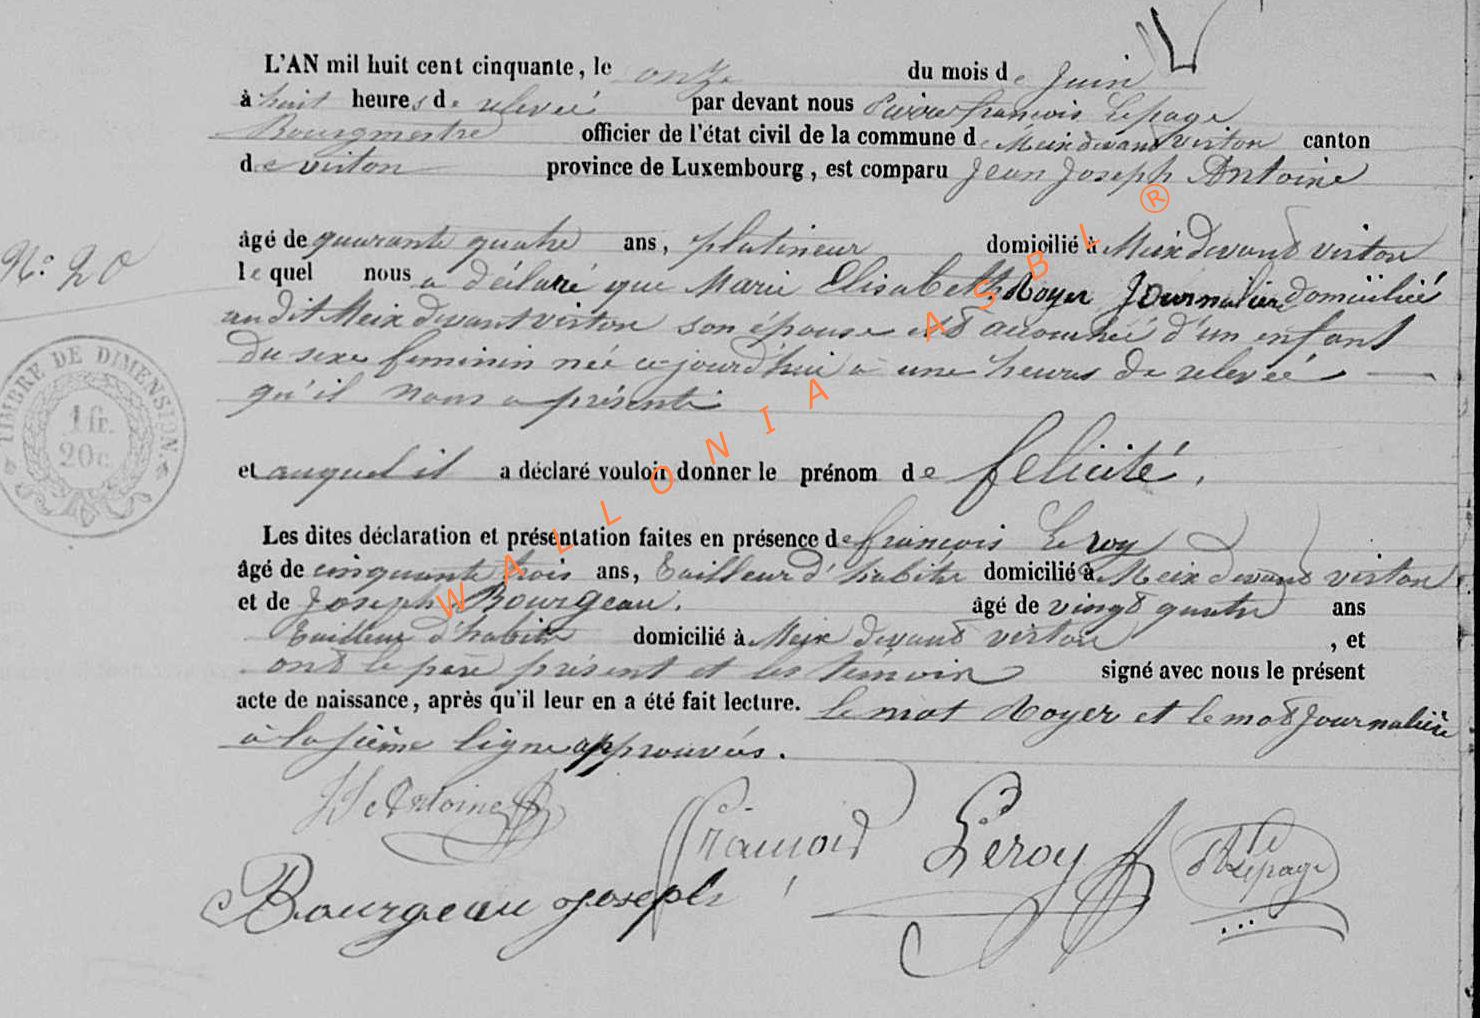 L'AN mil huit cent cinquante, le onze du mois de Juin
à huit heures de relevée par devant nous Pierre françois Lepage
Bourgmestre officier de l'état civil de la commune de Meix devant virton canton
de virton province de Luxembourg, est comparu Jean Joseph Antoine
âgé de quarante quatre ans, platineur domicilié à Meix devant virton
N.° 20
le quel nous a déclaré que Marie Elisabeth Royer Journalière domiciliée
au dit Meix devant virton son épouse est accouchée d'un enfant
du sexe feminin née ce jourd'hui à une heures de relevée
qu'il nous a présenté
TIMBRE DE DIMENSION.
1 fr.
20 c.
et auquel il a déclaré vouloir donner le prénom de felicité.
Les dites déclaration et présentation faites en présence de françois Leroy
âgé de cinquante trois ans, tailleur d'habits domicilié à Meix devant virton
et de Joseph Bourgeau. âgé de vingt quatre ans
tailleur d'habits domicilié à Meix devant virton, et
ont le père présent et les temoin signé avec nous le présent
acte de naissance, après qu'il leur en a été fait lecture. le mot Royer et le mot Journalière
à la ligne approuvés.
JJ Antoine
françois Leroy
Lepage
Bourgeau Joseph
WALLONIA ASBL ®